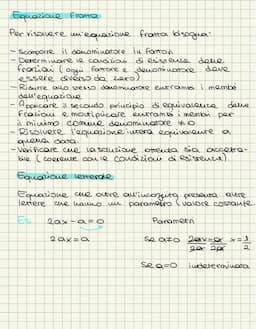 Equazione Fratta
Per risolvere un'equazione fratta bisogna:
- Scomporre il denominatore in fattori
- Determinare le condizioni di esistenza delle
frazioni (ogni fattore e denominatore deve
essere diverso da zero)
- Ridurre allo stesso denominatore entrambi i membri
dell'equazione
- Applicare il secondo principio di equivalenza delle
frazioni e moltiplicare entrambi i membri per
il minimo comune denominatore ≠0
- Risolvere l'equazione intera equivalente a
quella data.
- Verificare che la soluzione ottenuta sia accetta-
bile (coerente con le condizioni di esistenza).
Equazione letterale
Equazione che oltre all'incognita presenta altre
lettere che hanno un parametro (valore costante.
Es: 2ax - a = 0 Parametri
2ax = a Se a≠0 2ax = a x = 1/2
2a 2a
Se a=0 indeterminata